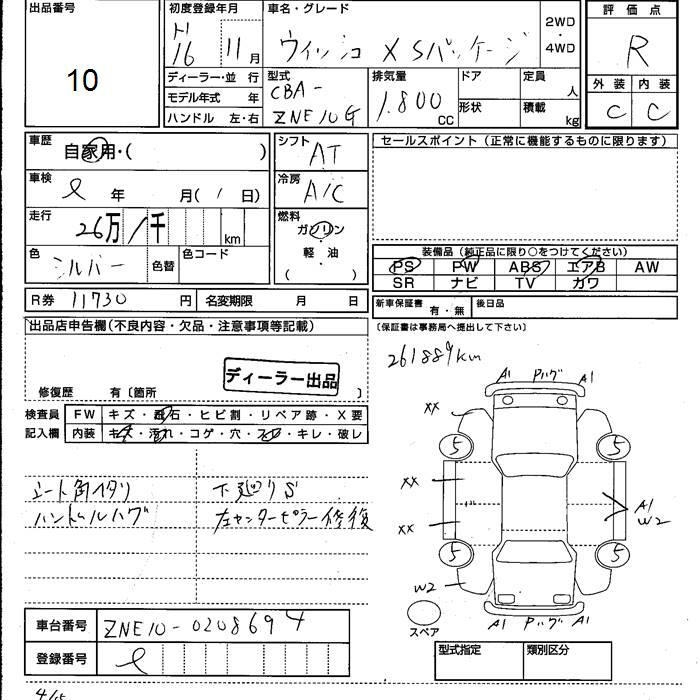 出品番号
10
初度登録年月
H16 11月
ディーラー・並 行
モデル年式 年
ハンドル 左・右
車名・グレード
ウィッシュ X Sパッケージ
2WD
・
4WD
型式
CBA-
ZNE10G
排気量
1.800
CC
ドア
形状
定員
人
積載
kg
評価点
R
外装 内装
C C
車歴
自家用・( )
車検
年 月( / 日)
走行
26万 1千 km
色
シルバー
色替
色コード
シフト
AT
冷房
A/C
燃料
ガソリン
・
軽油
( )
セールスポイント (正常に機能するものに限ります)
装備品 (純正品に限り○をつけてください)
PS PW ABS エアB AW
SR ナビ TV カワ
R券 11730 円 名変期限 月 日
新車保証書 有・無 後日品
(保証書は事務局へ提出して下さい)
出品店申告欄(不良内容・欠品・注意事項等記載)
ディーラー出品
修復歴 有〔箇所 〕
検査員
記入欄
FW キズ・飛石・ヒビ割・リペア跡・X要
内装 キズ・汚れ・コゲ・穴・スレ・キレ・破レ
261889km
A1 Pハグ A1
XX
5 5
XX
XX
A1
W2
5 5
W2
A1 Pハグ A1
スペア
シート角イタリ
ハンドルハゲ
下廻りS
左センターピラー修復
車台番号 ZNE10-0208694
登録番号
型式指定 類別区分